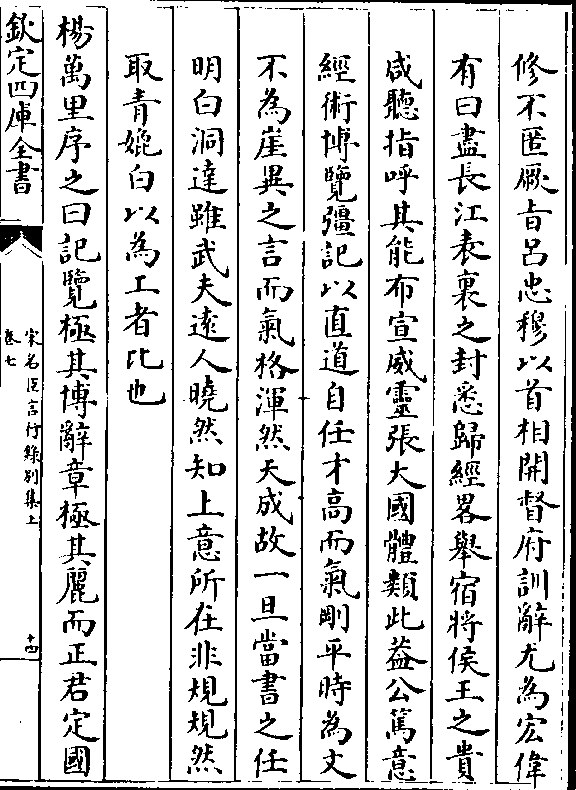 修不匿厥旨呂忠穆以首相開督府訓辭尤為宏偉
有曰盡長江表裏之封悉歸經畧舉宿將侯王之貴
咸聽指呼其能布宣威靈張大國體類此葢公篤意
經術博覽彊記以直道自任才高而氣剛平時為文
不為崖異之言而氣格渾然天成故一旦當書之任
明白洞達雖武夫逺人曉然知上意所在非規規然
取青媲白以為工者比也
楊萬里序之曰記覽極其博辭章極其麗而正君定國
欽定四庫全書
宋名臣言行録别集上
卷七
十四